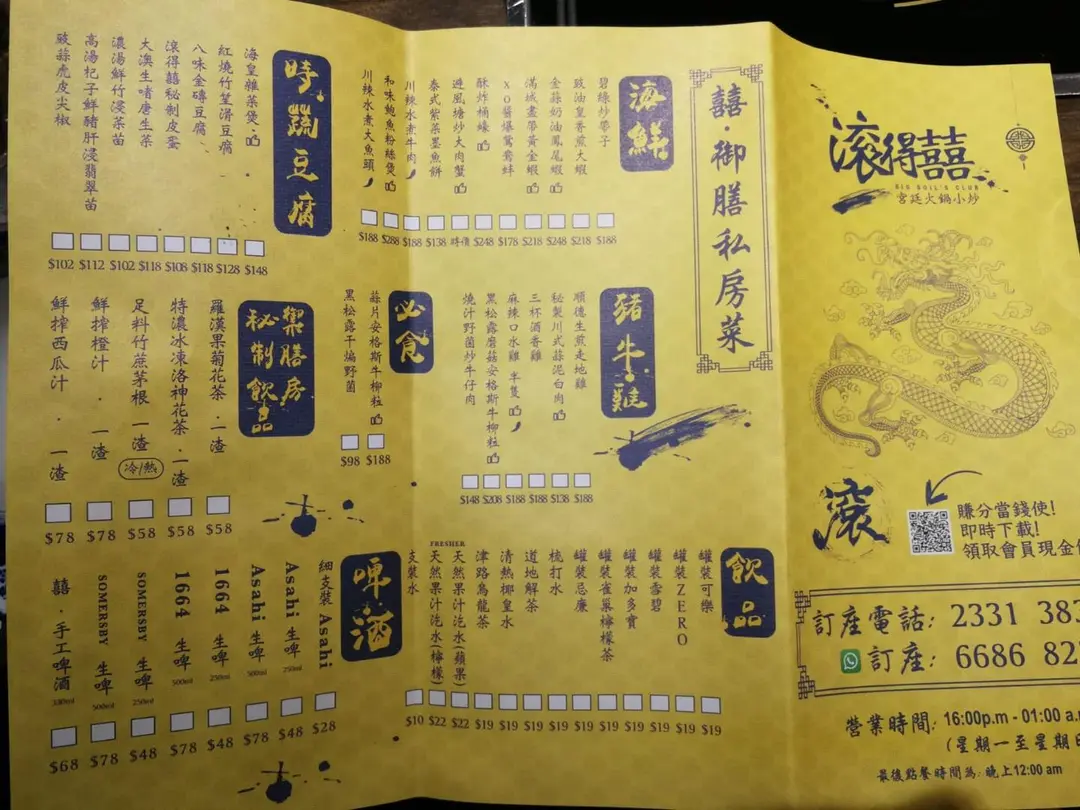 滾得囍
BIG BOIL'S CLUB
宮廷火鍋小炒
滾
賺分當錢使!
即時下載!
領取會員現金
訂座電話: 2331 383
訂座: 6686 82
營業時間: 16:00p.m - 01:00 a.
(星期一至星期日
最後點餐時間為: 晚上12:00 am
囍·御膳私房菜
海鮮
碧綠炒帶子 $188
豉油皇香煎大蝦 $218
金蒜奶油鳳尾蝦 $248
滿城盡帶黃金蝦 $218
XO醬爆鴛鴦蚌 $178
酥炸桶蠔 $248
避風塘炒大肉蟹 時價
泰式紫菜墨魚餅 $138
川辣水煮牛肉 $188
和味鮑魚粉絲煲 $288
川辣水煮大魚頭 $188
豬牛雞
順德生煎走地雞 $188
秘製川式蒜泥白肉 $138
三杯酒香雞 $188
麻辣口水雞 半隻 $188
黑松露磨菇安格斯牛柳粒 $208
燒汁野菌炒牛仔肉 $148
必食
蒜片安格斯牛柳粒 $188
黑松露干煸野菌 $98
飲品
罐裝可樂 $19
罐裝ZERO $19
罐裝雪碧 $19
罐裝加多寶 $19
罐裝雀巢檸檬茶 $19
罐裝忌廉 $19
梳打水 $19
道地解茶 $19
清熱椰皇水 $19
津路烏龍茶 $19
FRESHER
天然果汁汽水(蘋果) $22
天然果汁汽水(檸檬) $22
支裝水 $10
時蔬豆腐
海皇雜菜煲 $148
紅燒竹笙滑豆腐 $128
八味金磚豆腐 $118
滾得囍秘制皮蛋 $108
大澳生啫唐生菜 $118
濃湯鮮竹浸菜苗 $102
高湯杞子鮮豬肝浸翡翠苗 $112
豉蒜虎皮尖椒 $102
禦膳房
秘制飲品
羅漢果菊花茶·一渣 $58
特濃冰凍洛神花茶·一渣 $58
足料竹蔗茅根 一渣 冷/熱 $58
鮮搾橙汁·一渣 $78
鮮搾西瓜汁·一渣 $78
啤酒
細支裝 Asahi $28
Asahi 生啤 250ml $48
Asahi 生啤 500ml $78
1664 生啤 250ml $48
1664 生啤 500ml $78
SOMERSBY 生啤 250ml $48
SOMERSBY 生啤 500ml $78
囍·手工啤酒 330ml $68